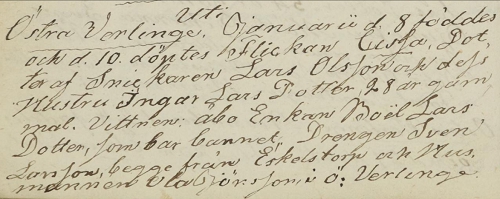 Uti
Östra Verlinge. Januarii d. 8 föddes
och d. 10. döptes Flickan Cissa, Dot-
ter af Snickaren Lars Olsson och dess
Hustru Ingar Lars Dotter, 28 år gam-
mal. Vittnen: abo Enkan Boël Lars
Dotter, som bar barnet, Drengen Sven
Larsson, begge från Eskelstorp och Hus-
mannen Ola Björnsson, i Ö: Verlinge.